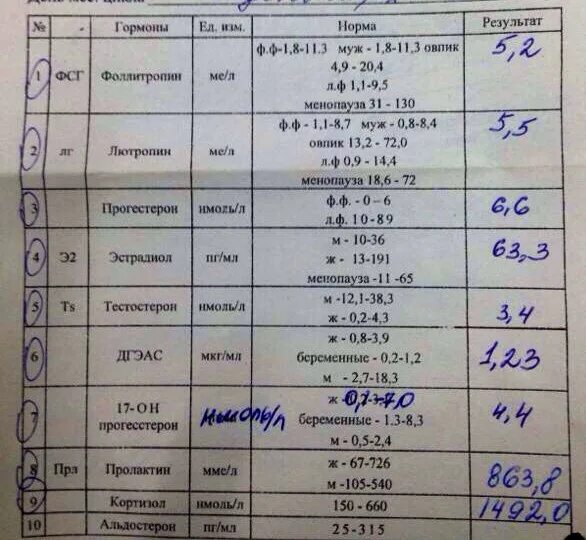 № Гормоны Ед. изм. Норма Результат
1 ФСГ Фоллитропин ме/л ф.ф-1,8-11.3 муж - 1,8-11,3 овпик 5,2
4,9 - 20,4
л.ф 1,1-9,5
менопауза 31 - 130
2 лг Лютропин ме/л ф.ф - 1,1-8,7 муж - 0,8-8,4 5,5
овпик 13,2 - 72,0
л.ф 0,9 - 14,4
менопауза 18,6 - 72
3 Прогестерон нмоль/л ф.ф. - 0 – 6 6,6
л.ф. 10-89
4 Э2 Эстрадиол пг/мл м - 10-36 63,3
ж - 13-191
менопауза -11 -65
5 Ts Тестостерон нмоль/л м -12,1-38,3 3,4
ж - 0,2-4,3
6 ДГЭАС мкг/мл ж - 0,8-3,9 1,23
беременные - 0,2-1,2
м - 2,7-18,3
7 17- ОН прогесстерон нмоль/л ж 4,4
беременные - 1.3-8,3
м - 0,5-2,4
8 Прл Пролактин мме/л ж - 67-726 863,8
м -105-540
9 Кортизол нмоль/л 150 - 660 1492,0
10 Альдостерон пг/мл 25-315